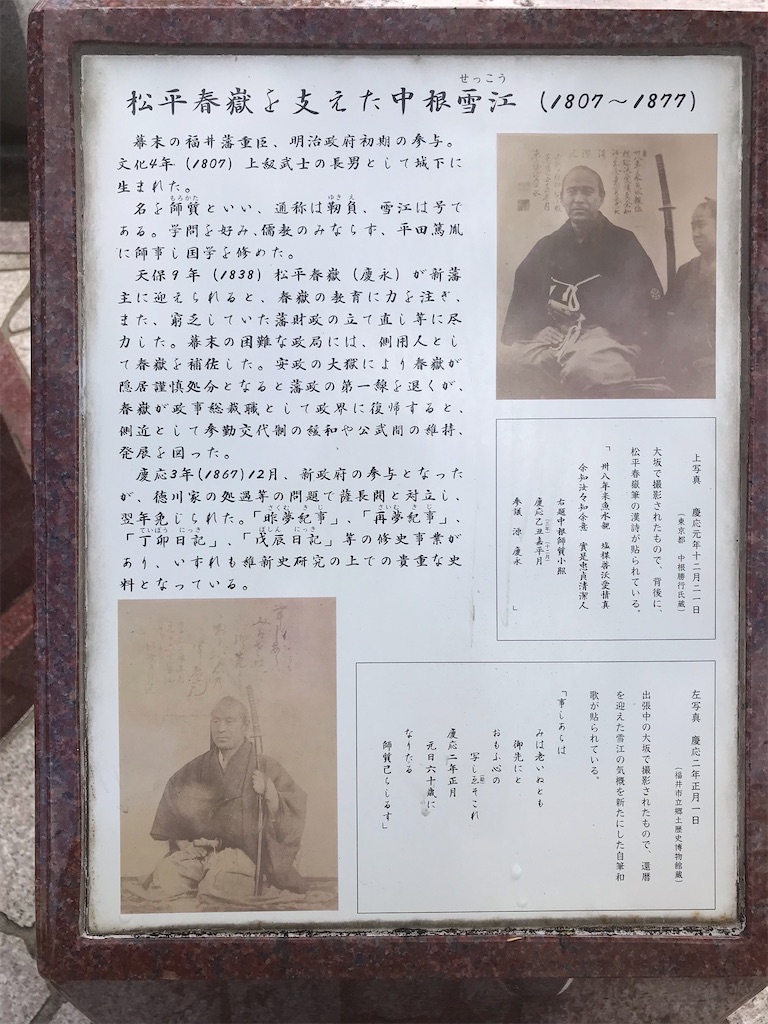 せっこう
松平春嶽を支えた中根雪江 (1807～1877)
幕末の福井藩重臣、明治政府初期の参与。
文化4年 (1807) 上級武士の長男として城下に
生まれた。
もろかた ゆきえ
名を師質といい、通称は靭負、雪江は号で
ある。学問を好み、儒教のみならず、平田篤胤
に師事し国学を修めた。
天保9年 (1838) 松平春嶽 (慶永) が新藩
主に迎えられると、春嶽の教育に力を注ぎ、
また、窮乏していた藩財政の立て直し等に尽
力した。幕末の困難な政局には、側用人とし
て春嶽を補佐した。安政の大獄により春嶽が
隠居謹慎処分となると藩政の第一線を退くが、
春嶽が政事総裁職として政界に復帰すると、
側近として参勤交代制の緩和や公武間の維持、
発展を図った。
慶応3年(1867)12月、新政府の参与となった
が、徳川家の処遇等の問題で薩長閥と対立し、
さくむ きじ さいむ きじ
翌年免じられた。「昨夢紀事」、「再夢紀事」、
ていぼう にっき ぼしん にっき
「丁卯日記」、「戊辰日記」等の修史事業が
あり、いずれも維新史研究の上での貴重な史
料となっている。
上写真 慶応元年十二月二一日
(東京都 中根勝行氏蔵)
大坂で撮影されたもので、背後に、
松平春嶽筆の漢詩が貼られている。
「卅八年来魚水親 塩梅善沃愛情真
余知汝々知余意 實是忠貞清潔人
右題中根師質小照
慶応乙丑嘉平月
参議 源 慶永 」
左写真 慶応二年正月一日
(福井市立郷土歴史博物館蔵)
出張中の大坂で撮影されたもので、還暦
を迎えた雪江の気概を新たにした自筆和
歌が貼られている。
「事しあらは
みは老いぬとも
御先にと
おもふ心の
写しゑそこれ
慶応二年正月
元日六十歳に
なりたる
師質已らしるす」